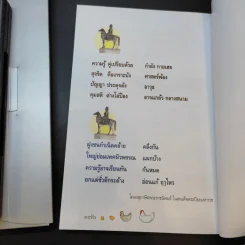 ความรู้ คู่เปรียบด้วย กำลัง กายเฮย
สุจริต คือเกราะบัง ศาสตร์พ้อง
ปัญญา ประดุจดัง อาวุธ
คุมสติ ต่างโล่ป้อง อาจแกล้ว กลางสนาม
ฝูงชนกำเนิดคล้าย คลึงกัน
ใหญ่ย่อมเพศผิวพรรณ แผกบ้าง
ความรู้อาจเรียนทัน กันหมด
ยกแต่ชั่วดีกระด้าง อ่อนแก้ ฤๅไหว